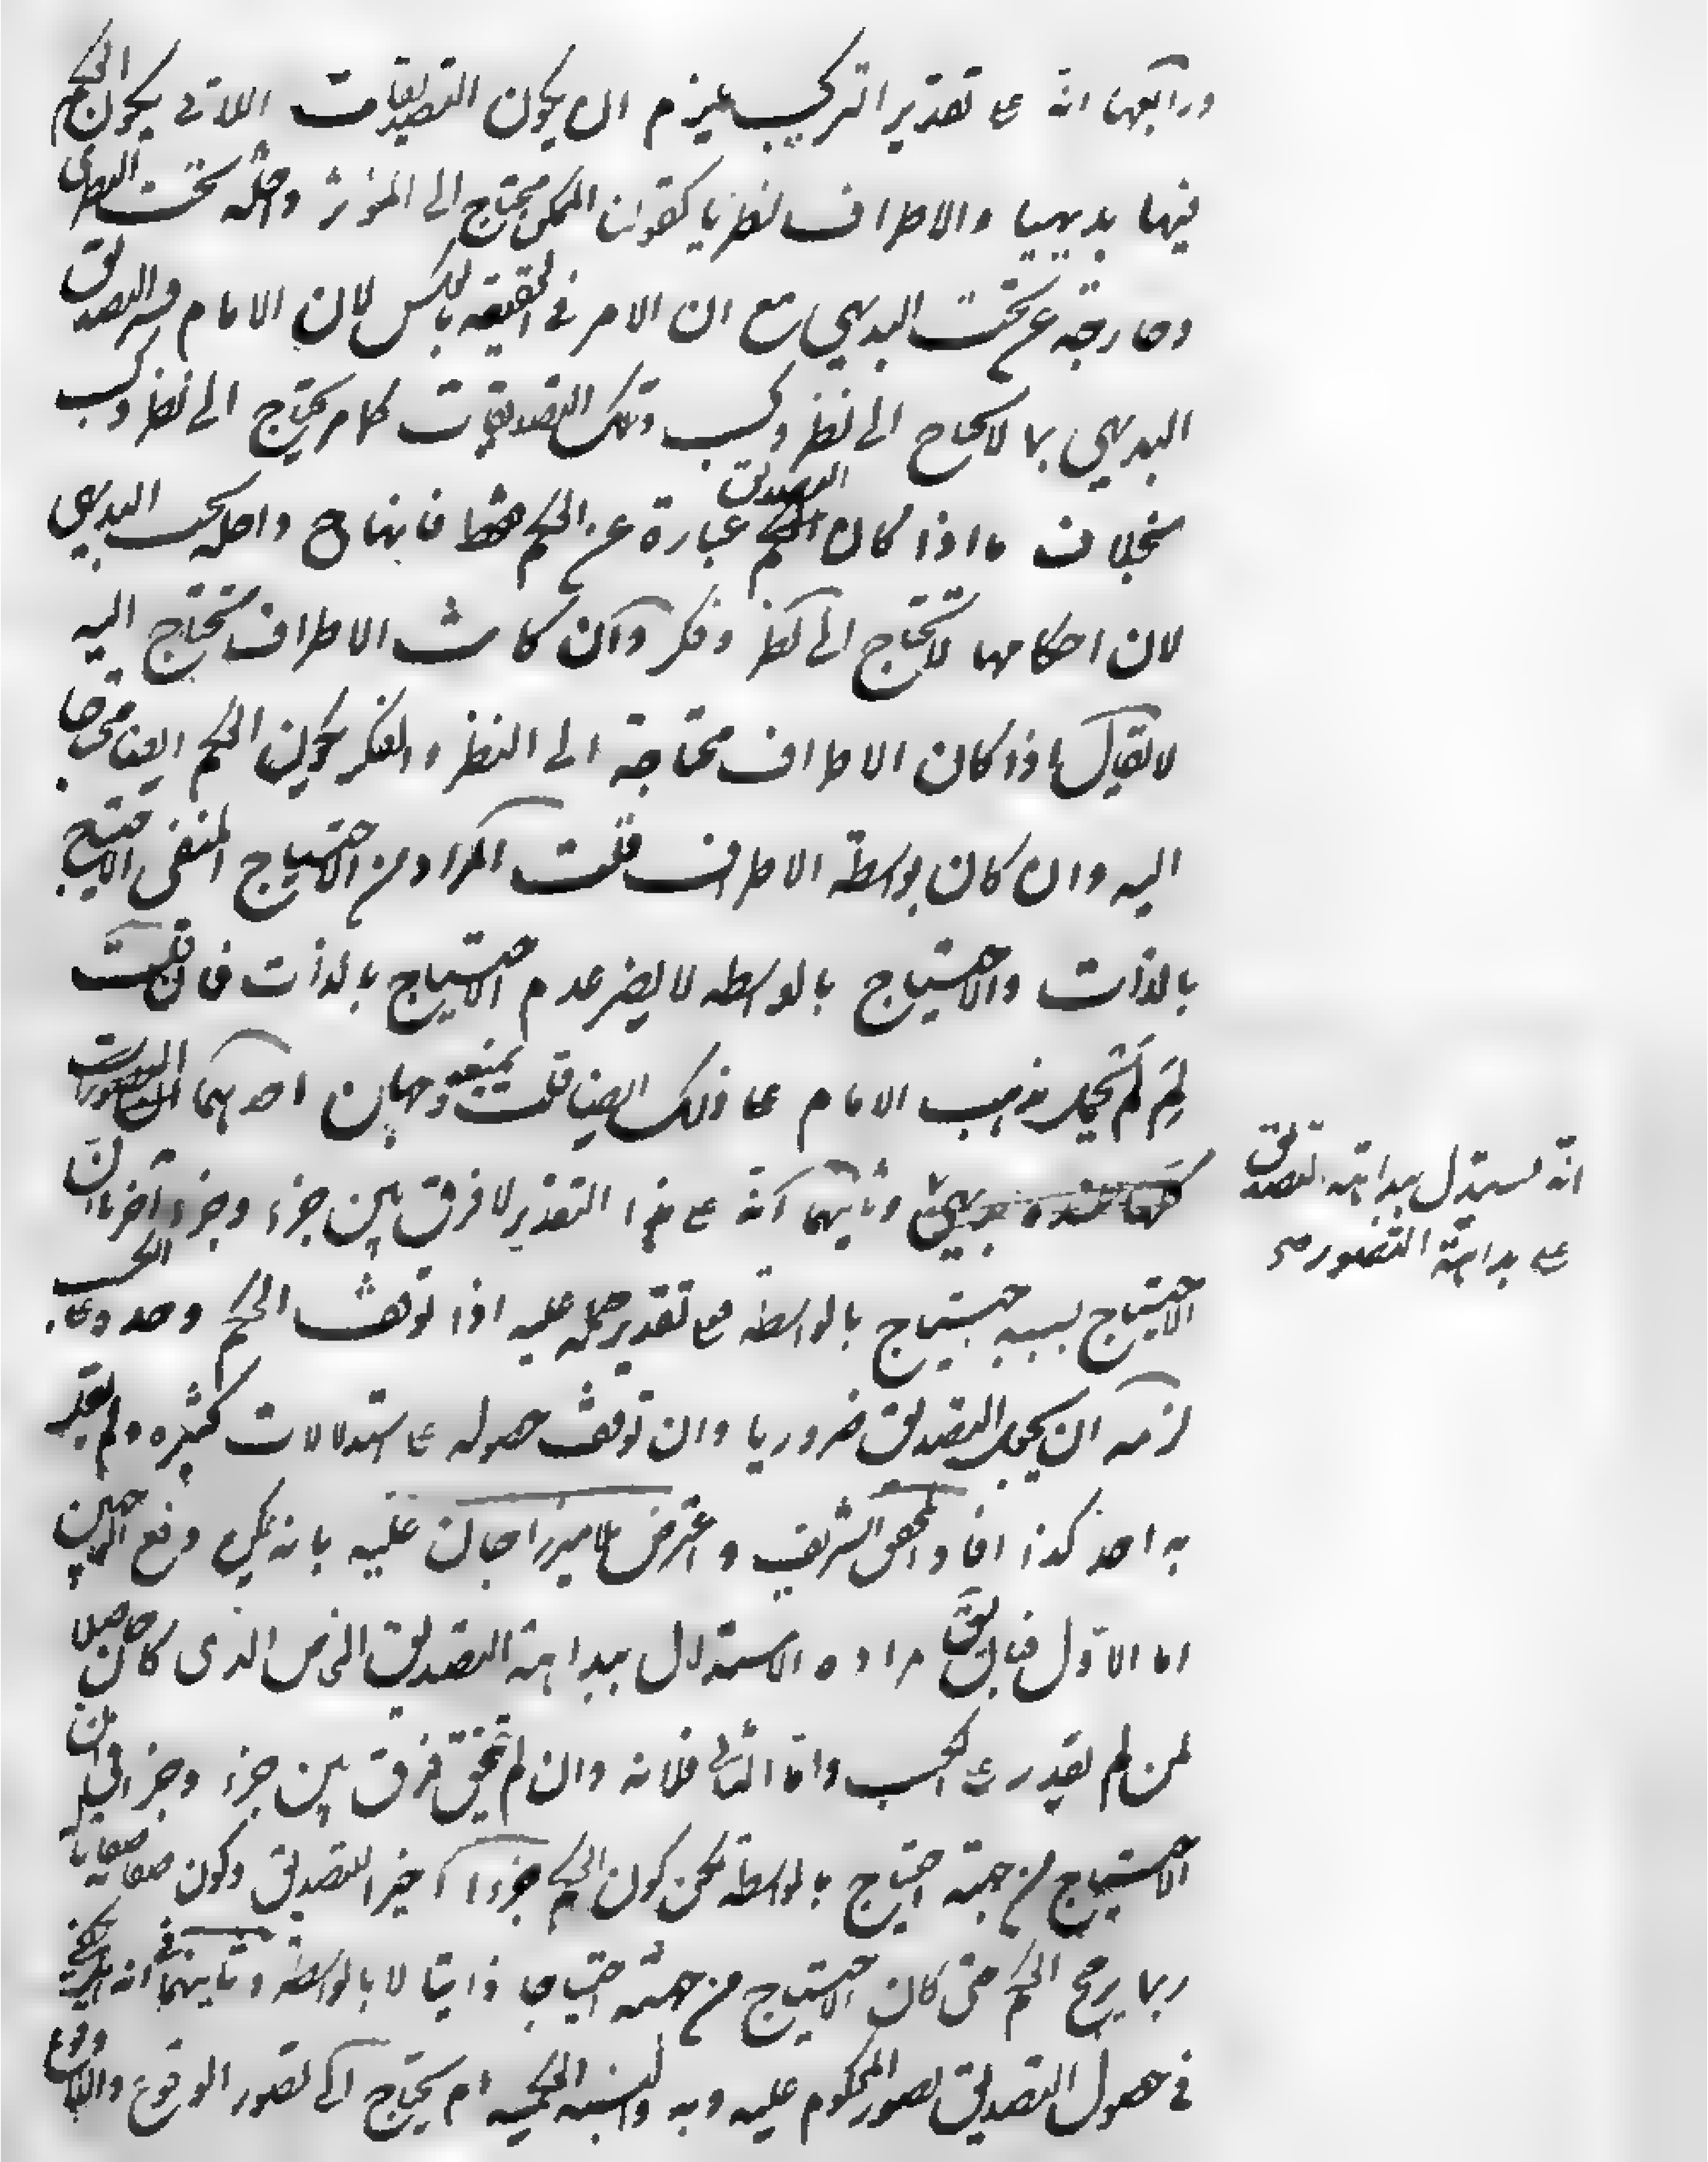 ورابعها انه على تقدير التركيب يلزم ان يكون التصديقات اللاتى يكون الحكم
فيها بديهيا والاطراف نظريا كقولنا الممكن محتاج الى المؤثر داخلة تحت النظرى
وخارجة عن تحت البديهى مع ان الامر فى الحقيقة بالعكس لان الامام فسر التصديق
البديهى بما لا يحتاج الى نظر وكسب وتلك التصديقات كما مر يحتاج الى نظر وكسب
بخلاف ما اذا كان التصديق عبارة عن الحكم فقط فانها ح داخلة تحت البديهى
لان احكامها لا تحتاج الى نظر وفكر وان كانت الاطراف تحتاج اليه
لا يقال اذا كان الاطراف محتاجة الى النظر والفكر يكون الحكم ايضا محتاجا
اليه وان كان بواسطة الاطراف قلت المراد من الاحتياج المنفى الاحتياج
بالذات والاحتياج بالواسطه لا يضر عدم الاحتياج بالذات فان قلت
لِمَ لَمْ يحمل مذهب الامام على ذلك ايضا قلت يمنعه وجهان احدهما
انه يستدل ببداهة التصديق
على بداهة التصور صح
وثانيهما انه على هذا التقدير لا فرق بين جزء وجزء آخر فان
الاحتياج بسببه احتياج بالواسطة فعلى تقدير حمله عليه اذا توقف الحكم وحده على الكسب
لزمه ان يجعل التصديق ضروريا وان توقف حصوله على استدلالات كثيره ولم يقل
به احد كذا افاد المحقق الشريف واعترض ملا ميرزا جان عليه بانه يمكن دفع الوجهين
اما الاول فبان يق مراده الاستدلال ببداهة التصديق الخاص الذى كان حاصلا
لمن لم يقدر على الكسب واما الثانى فلانه وان لم يتحقق فرق بين جزء وجزء فى ان
الاحتياج من جهة احتياج بالواسطة لكن كون الحكم جزءا اخيرا للتصديق وكون
ربما يرجح الحكم متى كان الاحتياج من جهته احتياجا ذاتيا لا بالواسطة وثانيهما انه هل يكفى
فى حصول التصديق تصور المحكوم عليه وبه والنسبة الحكمية ام يحتاج الى تصور الوقوع واللاوقوع